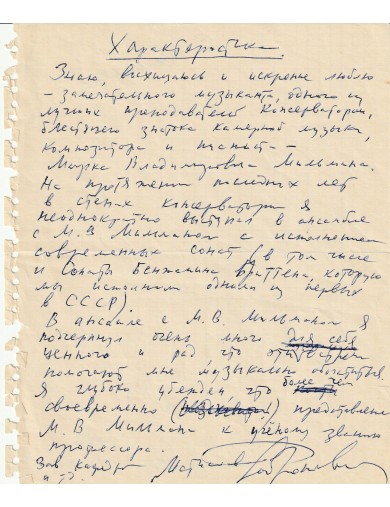 Характеристика.
Знаю, восхищаюсь и искренне люблю
– замечательного музыканта, одного из
лучших преподавателей Консерватории,
блестящего знатока камерной музыки,
композитора и пианиста –
Марка Владимировича Мильмана.
На протяжении последних лет
в стенах консерватории я
неоднократно выступал в ансамбле
с М. В. Мильманом с исполнением
современных сонат (в том числе
и сонаты Бенжамина Бриттена, которую
мы исполнили одними из первых
в СССР).
В ансамбле с М. В. Мильманом я
подчерпнул очень много для себя
ценного и рад, что эти встречи
помогают мне музыкально обогатиться.
Я глубоко убежден, что более чем
своевременно представление
М. В. Мильмана к учёному званию
профессора.
Зав кафедрой Мстислав Ростропович